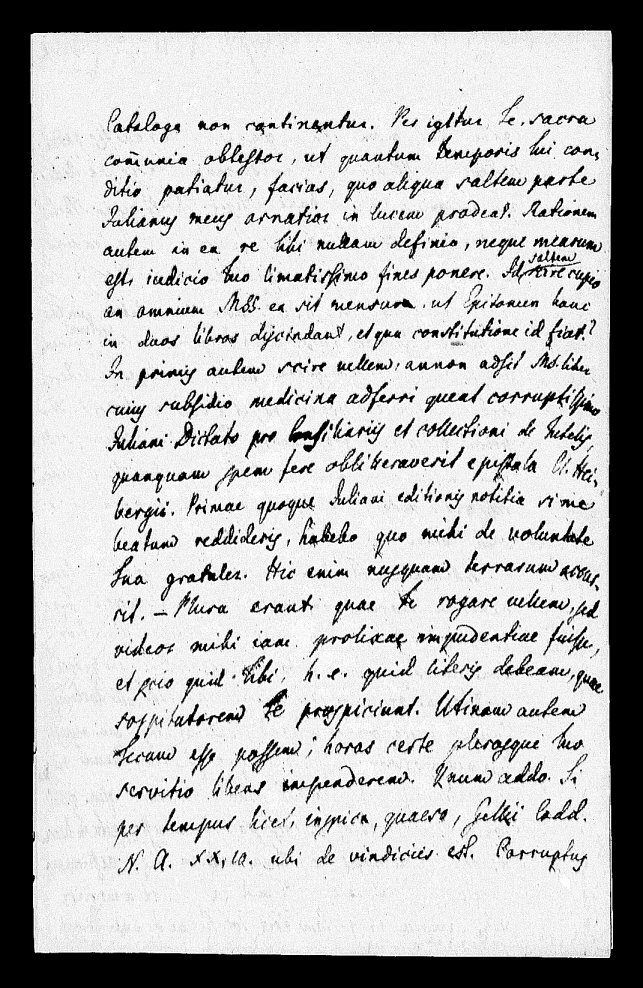 Catalogo non continentur. Per igitur Te, sacra
com̄unia obtestor, ut quantum temporis tui con-
ditio patiatur, facias, quo aliqua saltem parte
Julianus meus ornatior in lucem prodeat. Rationem
autem in ea re tibi nullam definio, neque mearum
est, iudicio tuo limatissimo fines ponere. Id saltem scire cupio
an omnium MSS. ea sit mensura, ut Epitomen hanc
in duos libros discindant, et qua constitutione id fiat?
In primis autem scire vellem, annon adsit Ms. liber
cuius subsidio medicina adferri queat corruptissimo
Juliani Dictato pro Consiliariis et collectioni de Tutelis
quanquam spem fere obliteraverit epistola Cl. Hei-
bergii. Primae quoque Juliani editionis notitia si me
beatum reddideris, habebo quo mihi de voluntate
Tua gratuler. Hic enim nusquam terrarum
rit. – Plura erant quae Te rogare vellem, sed
videor mihi iam prolixae impudentiae fuisse,
et scio quid Tibi, h. e. quid literis debeam, quae
sospitatorem Te prospiciunt. Utinam autem
Tecum esse possem; horas certe plerasque tuo
servitio libens impenderem. Unum addo. Si
per tempus licet, inspice, quaeso, Gellii Codd.
N. A. XX, 10. ubi de vindiciis est. Corruptus